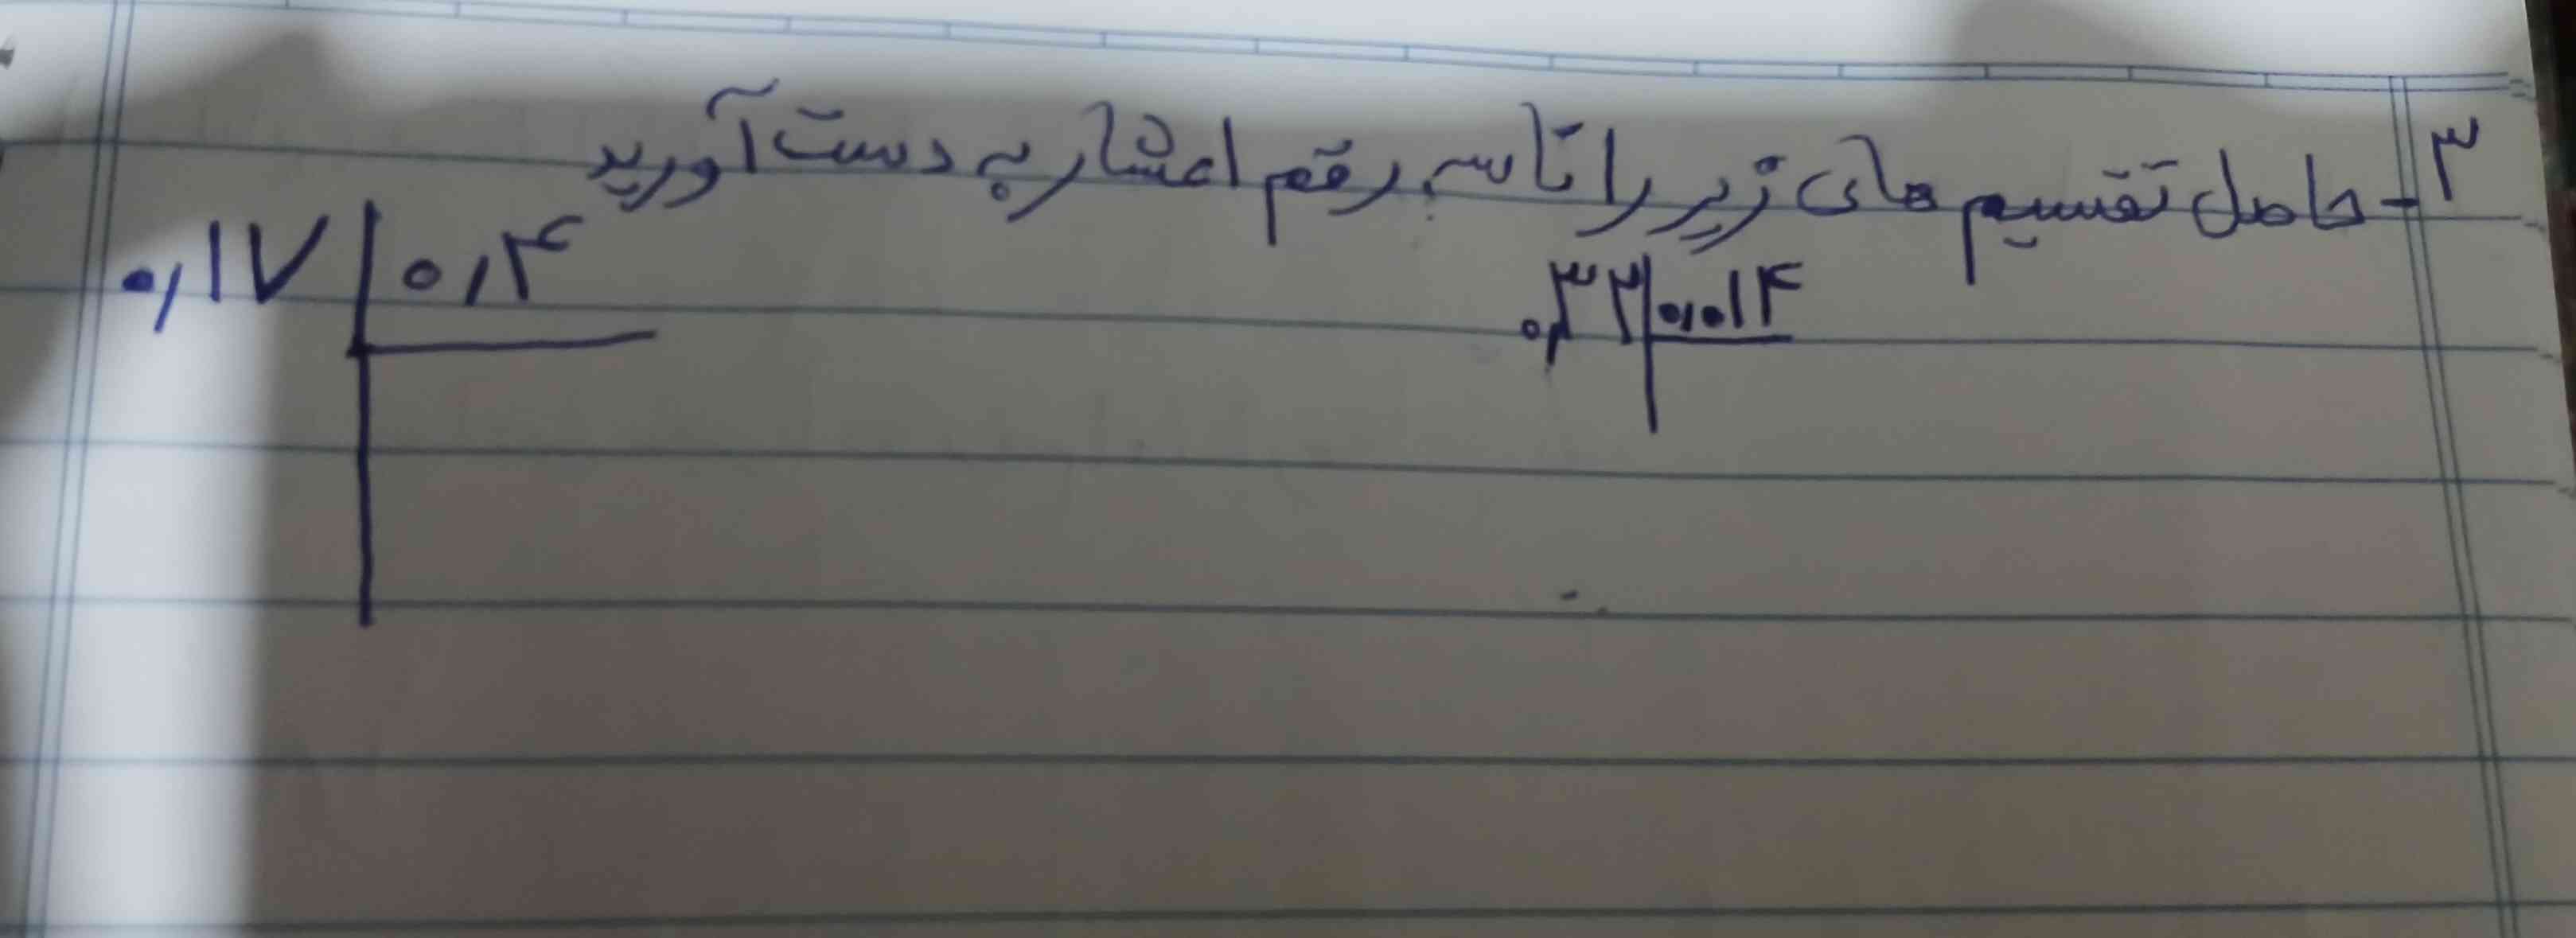 ۳- حاصل تقسیم های زیر را تا سه رقم اعشار به دست آورید
۰,۳۲ | ۰,۰۱۴
۰,۱۷ | ۰,۴